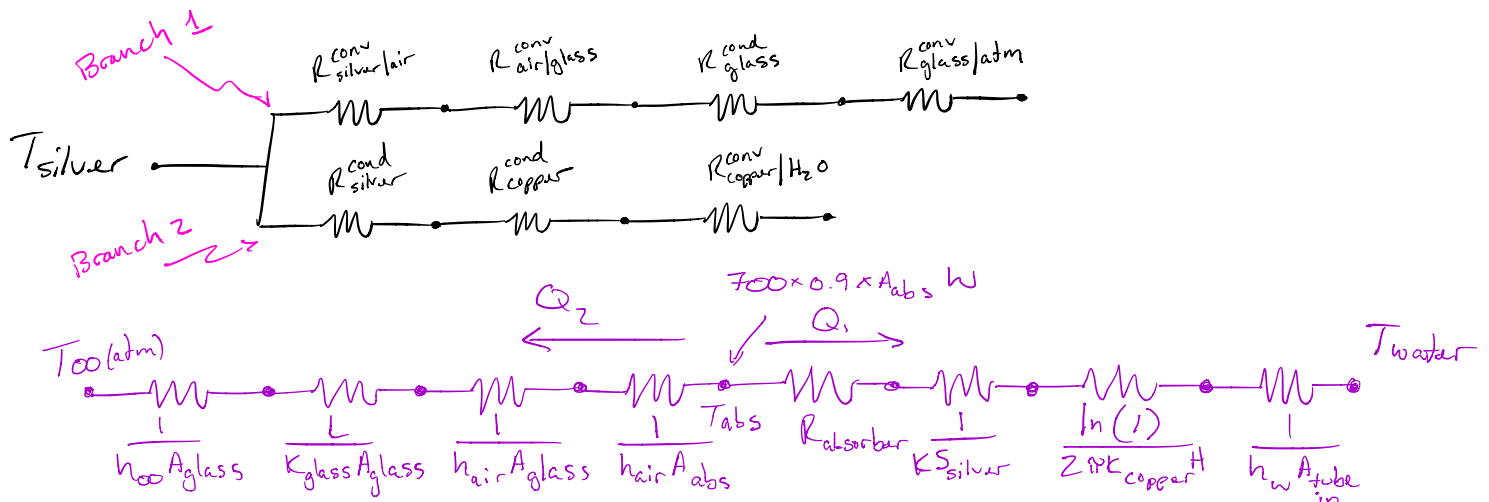 Branch 1
R conv silver/air
R conv air/glass
R cond glass
R conv glass/atm
T silver
R cond silver
R cond copper
R conv copper/H₂O
Branch 2
700 × 0.9 × A abs W
Q₂
Q₁
T∞(atm)
T water
T abs
R absorber
1 / h∞ A glass
L / K glass A glass
1 / h air A glass
1 / h air A abs
1 / K S silver
ln(1) / 2πK copper H
1 / h w A tube in